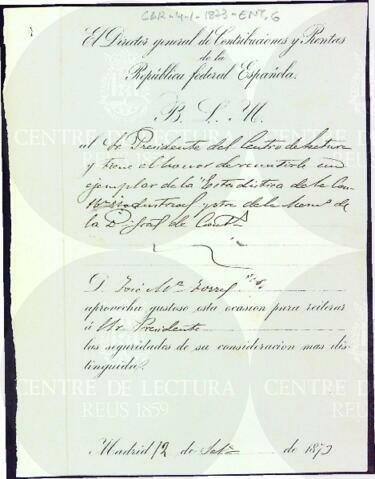 CAR-4-1-1873-ENT, 6
El Director general de Contribuciones y Rentas
de la
República federal Española.
B. L. M.
al Sr Presidente del Centro de Lectura
y tiene el honor de remitirle un
ejemplar de la "Estadistica de la Con
industrial y otro de la Mema de
la Dn Gral de Contns
D. José Ma Torres
aprovecha gustoso esta ocasion para reiterar
á Sr Presidente
las seguridades de su consideracion mas dis-
tinguida.
Madrid 12 de Sete de 1873
CENTRE DE LECTURA
REUS 1859
CENTRE DE LECTURA
REUS 1859